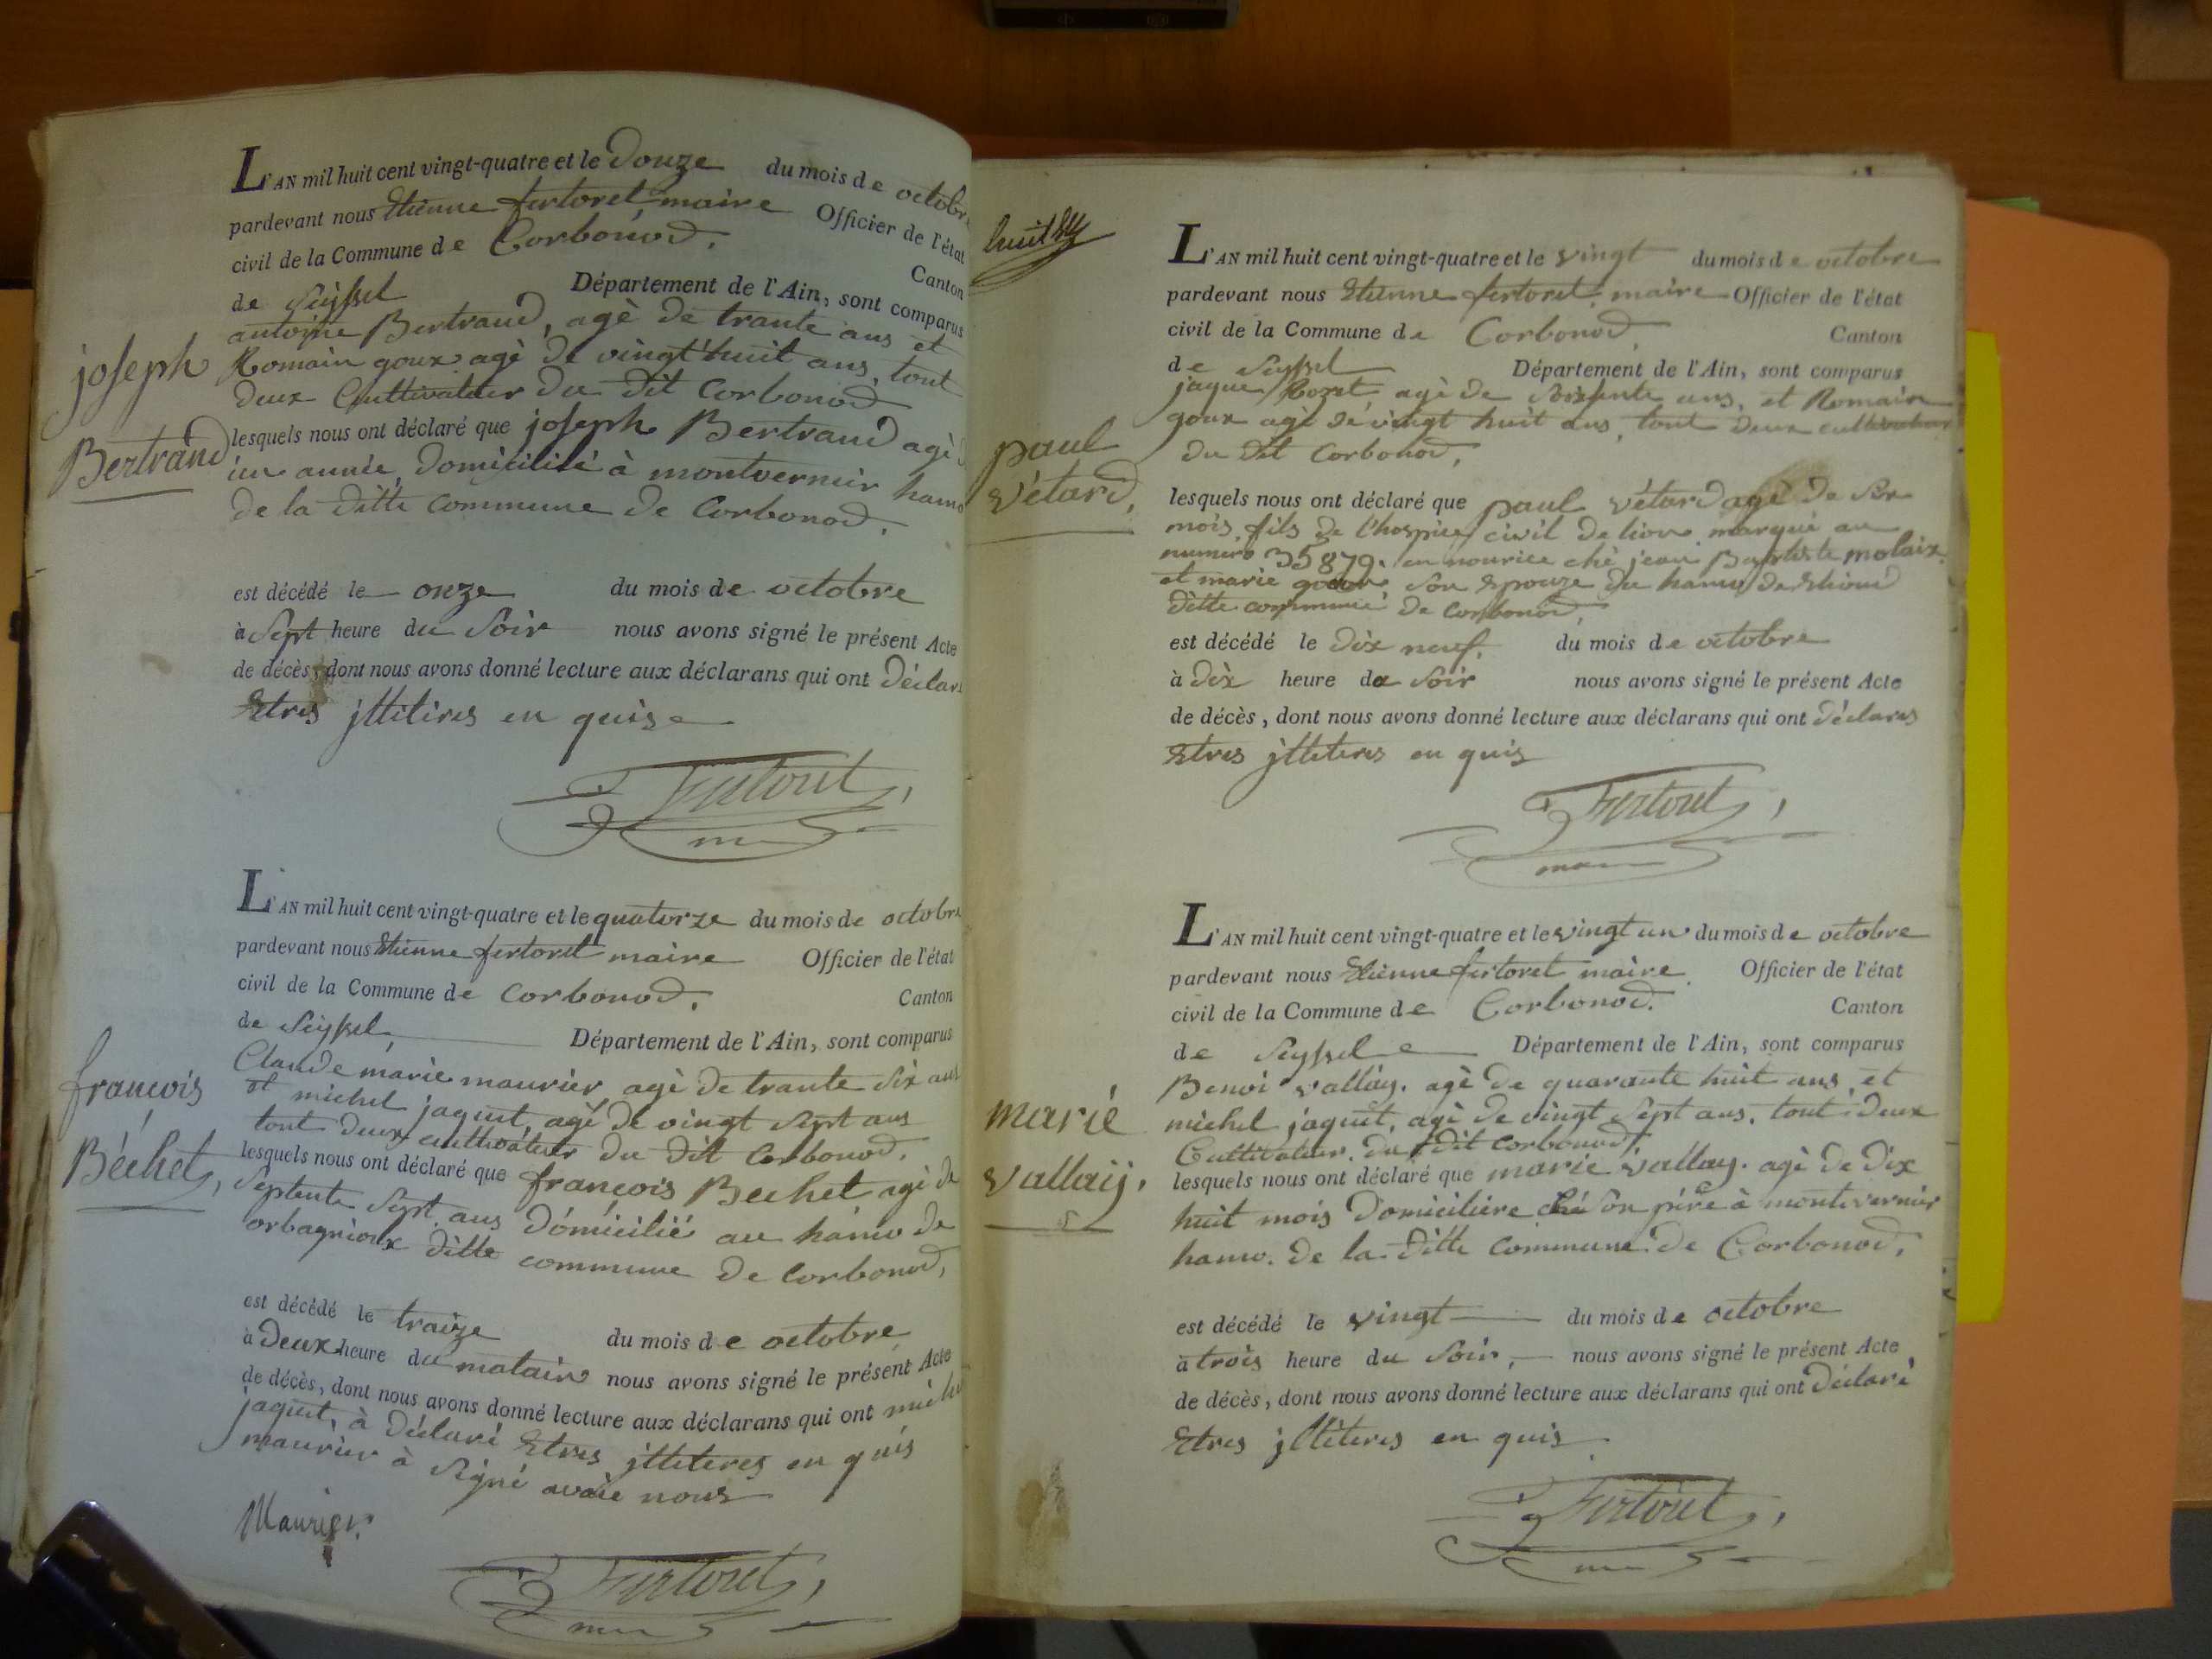 L'AN mil huit cent vingt-quatre et le douze du mois de octobre
pardevant nous Etienne fertoret maire Officier de l'état
civil de la Commune de Corbonod. Canton
de Seyssel Département de l'Ain, sont comparus
antoine Bertrand, agè de trante ans et
Romain goux agè de vingt huit ans, tout
deux Cultivateur du dit Corbonod
joseph
Bertrand
lesquels nous ont déclaré que joseph Bertrand agè
un année, domicilié à montvernier hamo
de la ditte commune de Corbonod.
est décédé le onze du mois de octobre
à Sept heure du Soir nous avons signé le présent Acte
de décès, dont nous avons donné lecture aux déclarans qui ont déclar
Etres jlliteres en quis
Fertoret
L'AN mil huit cent vingt-quatre et le quatorze du mois de octobre
pardevant nous Etienne fertoret maire Officier de l'état
civil de la Commune de Corbonod. Canton
de Seyssel Département de l'Ain, sont comparus
Claude marie maurier agè de trante Six ans
et michel jaquet, agè de vingt Sept ans
tout deux cultivateur du dit Corbonod.
françois
Béchet,
lesquels nous ont déclaré que françois Bechet agè de
Septente Sept ans domicilié au hamo de
orbagnioux ditte commune de Corbonod,
est décédé le traize du mois de octobre
à deux heure du matain nous avons signé le présent Acte
de décès, dont nous avons donné lecture aux déclarans qui ont miche
jaquet, à déclaré Etres jlliteres en quis
maurier à Signé avaie nous
Maurier.
Fertoret,
huit
L'AN mil huit cent vingt-quatre et le vingt du mois de octobre
pardevant nous Etienne fertoret maire Officier de l'état
civil de la Commune de Corbonod. Canton
de Seyssel Département de l'Ain, sont comparus
jaque Rozet agè de Soixente ans, et Romain
goux agè de vingt huit ans, tout deux cultivateur
du dit Corbonod,
paul
vétard,
lesquels nous ont déclaré que paul vétard agè de Six
mois, fils de l'hospice civil de lion marqué au
numero 35879. en nourice ché jean Baptiste molaix
et marie goux Son Epouze du hamo de
ditte commune de Corbonod,
est décédé le dix neuf. du mois de octobre
à dix heure du Soir nous avons signé le présent Acte
de décès, dont nous avons donné lecture aux déclarans qui ont déclares
Etres jlliteres en quis
Fertoret,
L'AN mil huit cent vingt-quatre et le vingt un du mois de octobre
pardevant nous Etienne fertoret maire Officier de l'état
civil de la Commune de Corbonod. Canton
de Seyssel Département de l'Ain, sont comparus
Benoi vallay. agè de quarante huit ans, et
michel jaquet, agè de vingt Sept ans, tout deux
Cultivateur. du dit Corbonod
marie
vallay,
lesquels nous ont déclaré que marie vallay. agè de dix
huit mois domiciliére ché Son pére à montvernier
hamo. de la ditte Commune de Corbonod,
est décédé le vingt du mois de octobre
à trois heure du Soir, nous avons signé le présent Acte
de décès, dont nous avons donné lecture aux déclarans qui ont déclaré
Etres jlliteres en quis
Fertoret,